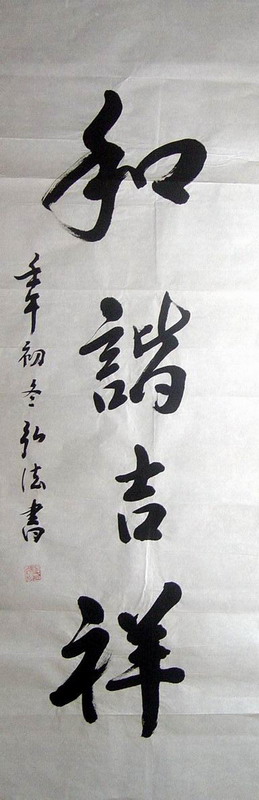 和諧吉祥
壬午初冬弘法書